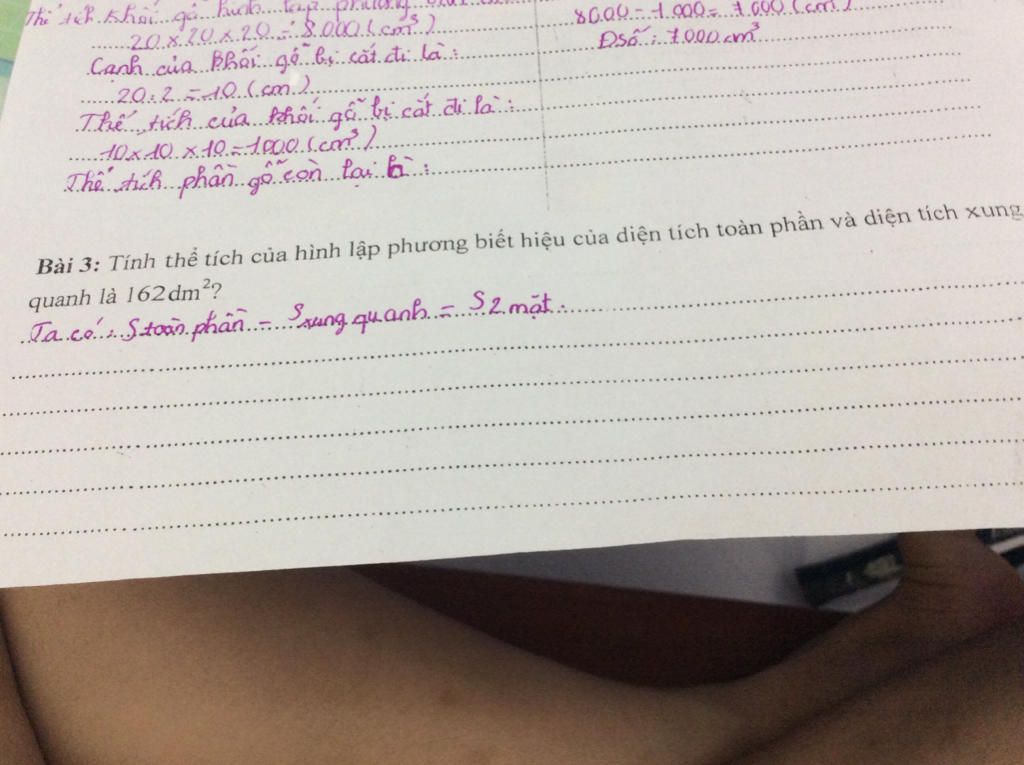 Thể tích khối gỗ hình lập phương
20 x 20 x 20 = 8000 (cm³)
Cạnh của khối gỗ bị cắt đi là:
20 : 2 = 10 (cm)
Thể tích của khối gỗ bị cắt đi là:
10 x 10 x 10 = 1000 (cm³)
Thể tích phần gỗ còn lại là:
8000 - 1000 = 7000 (cm³)
Đsố: 7000 cm³
Bài 3: Tính thể tích của hình lập phương biết hiệu của diện tích toàn phần và diện tích xung
quanh là 162dm²?
Ta có: S toàn phần - S xung quanh = S 2 mặt.